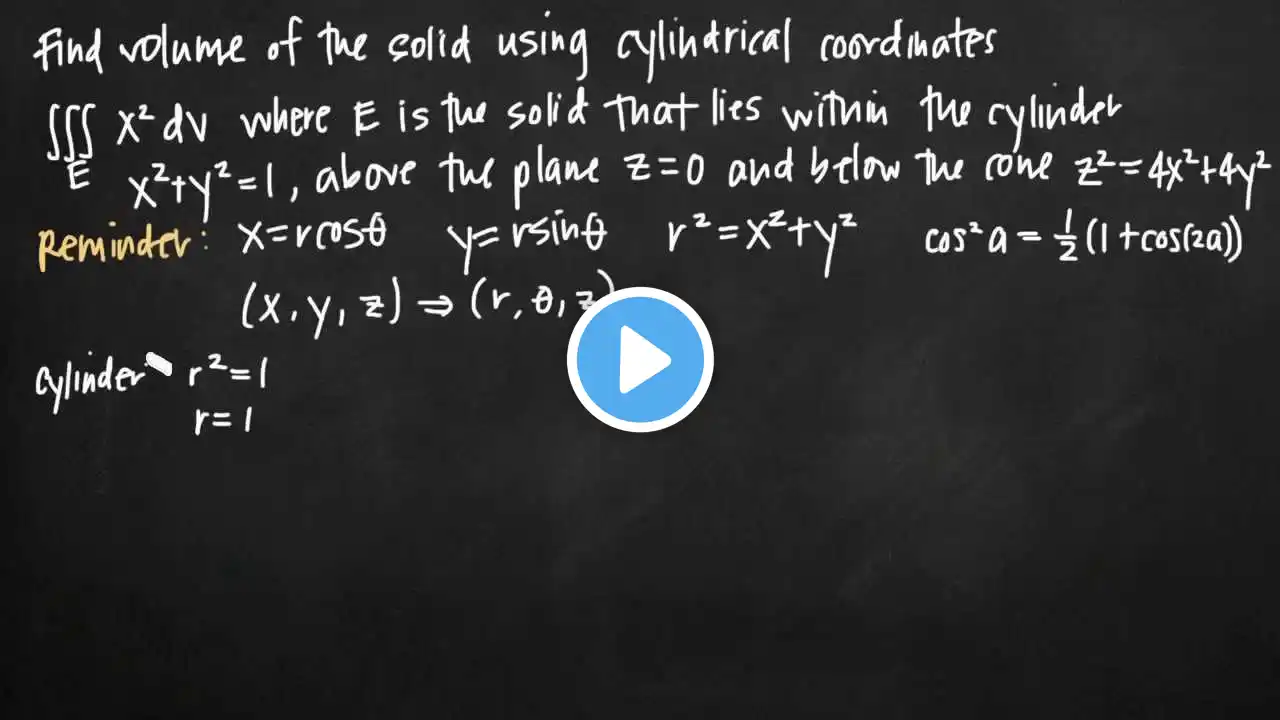 Find volume of the solid using cylindrical coordinates
∭E x² dV where E is the solid that lies within the cylinder
x²+y²=1, above the plane z=0 and below the cone z²=4x²+4y²
Reminder: x=rcosθ y=rsinθ r²=x²+y² cos²a=½(1+cos(2a))
(x, y, z) ⇒ (r, θ, z)
cylinder: r²=1
r=1